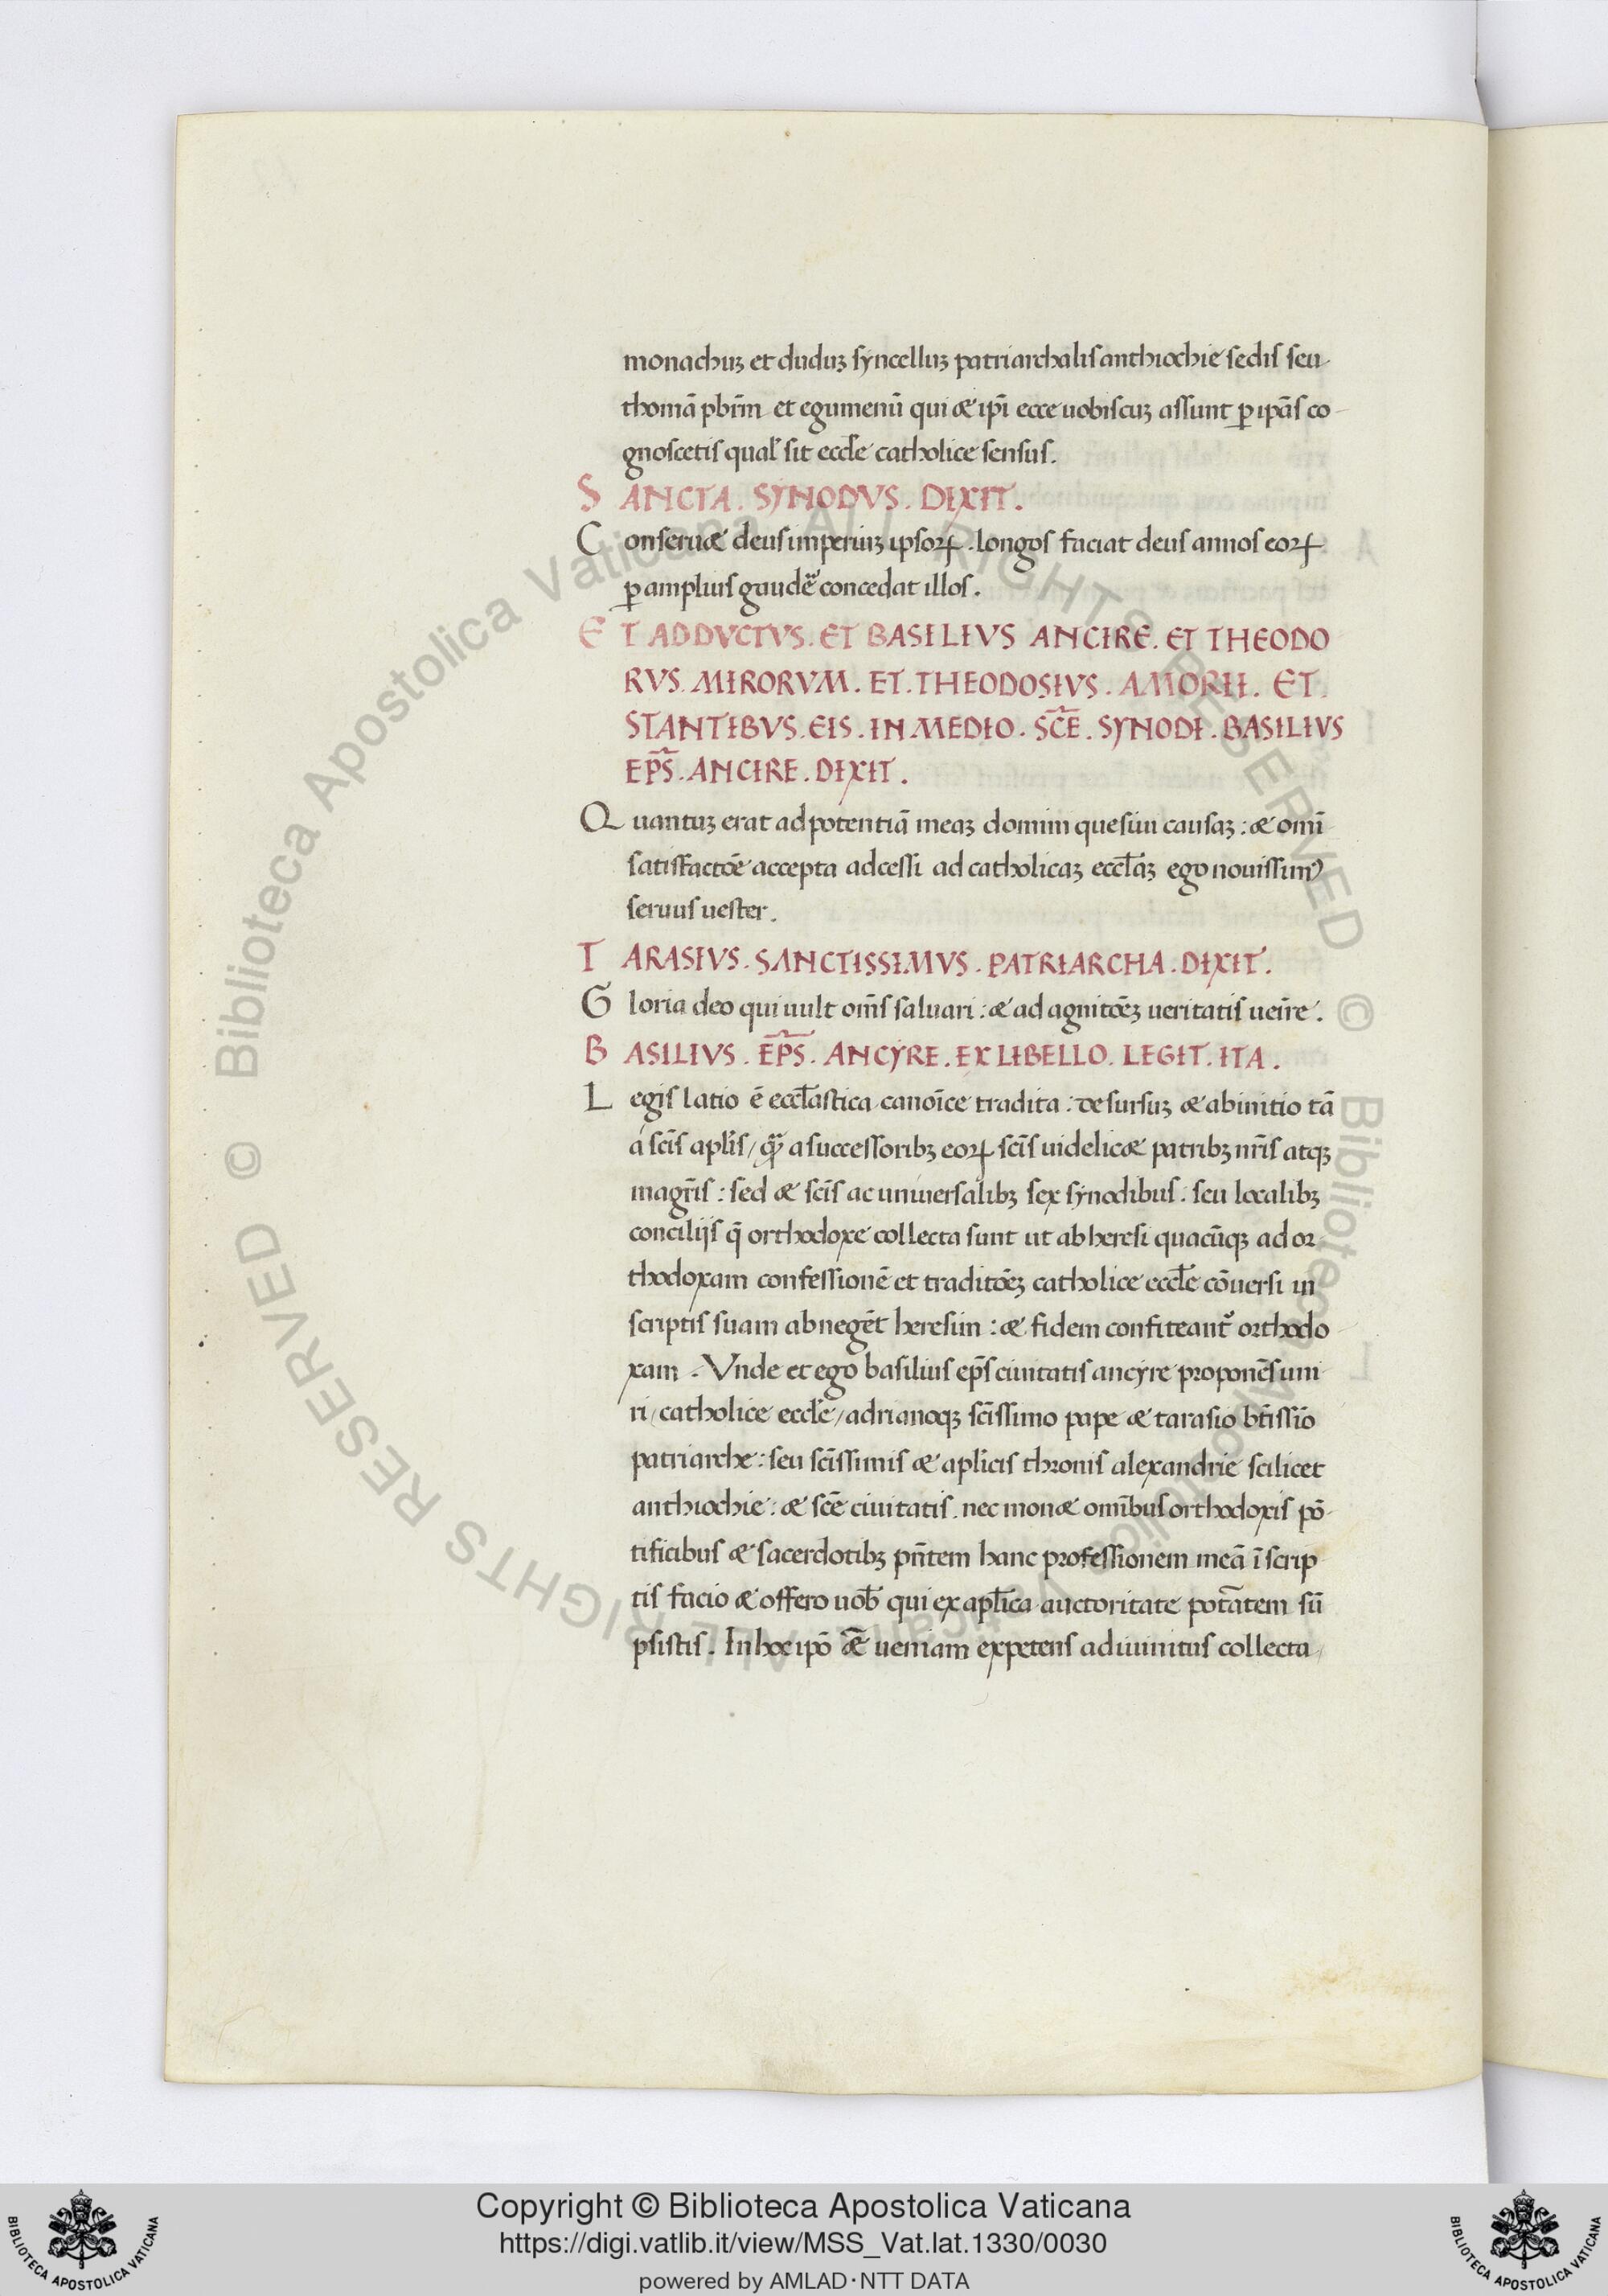 monachuꝫ et duduꝫ syncelluꝫ patriarchalis anthiochie sedis seu
thomā pbr̄m et egumenū qui & ip̄i ecce uobiscuꝫ assunt ꝑ ip̄as co-
gnoscetis qual̓ sit eccl̄e catholice sensus.
SANCTA . SYNODVS . DIXIT .
Conseru& deus imperiuꝫ ipsoꝝ . longos faciat deus annos eoꝝ
ꝑ amplius gaudēr concedat illos .
ET ADDVCTVS . ET BASILIVS ANCIRE . ET THEODO
RVS . MIRORVM . ET . THEODOSIVS . AMORII . ET .
STANTIBVS . EIS . IN MEDIO . SC̄E . SYNODI . BASILIVS
EP̄S . ANCIRE . DIXIT .
Quantuꝫ erat ad potentiā meaꝫ domini quesiui causaꝫ : & om̄i
satisfactōe accepta adcessi ad catholicaꝫ eccl̄aꝫ ego nouissimꝰ
seruus uester .
TARASIVS . SANCTISSIMVS . PATRIARCHA . DIXIT .
Gloria deo qui uult om̄s saluari : & ad agnitōeꝫ ueritatis ueīre .
BASILIVS . EP̄S . ANCYRE . EX LIBELLO . LEGIT . ITA .
Legis latio ē eccl̄astica canoīce tradita : desursuꝫ & ab initio tā
a sc̄is apl̄is / qꝫ a successoribꝫ eoꝝ sc̄is uidelic& patribꝫ nr̄is atqꝫ
magr̄is : sed & sc̄is ac uniuersalibꝫ sex synodibus : seu localibꝫ
concilijs q̄ orthodoxe collecta sunt ut ab heresi quacūqꝫ ad or
thodoxam confessionē et traditōeꝫ catholice eccl̄e cōuersi in
scriptis suam abnegēt heresim : & fidem confiteant᷑ orthodo
xam . Vnde et ego basilius ep̄s ciuitatis ancyre proponēs uni
ri / catholice eccl̄e / adrianoqꝫ sc̄issimo pape & tarasio bt̄issīo
patriarche : seu sc̄issimis & apl̄icis thronis alexandrie scilicet
anthiochie : & sc̄e ciuitatis . nec mon& om̄ibus orthodoxis pō-
tificibus & sacerdotibꝫ pn̄tem hanc professionem meā ī scrip
tis facio & offero uob̄ qui ex apl̄ica auctoritate potātem sū
psistis . In hoc ip̄o &̄ ueniam expetens a diuinitus collecta
Copyright © Biblioteca Apostolica Vaticana
https://digi.vatlib.it/view/MSS_Vat.lat.1330/0030
powered by AMLAD·NTT DATA
BIBLIOTECA APOSTOLICA VATICANA
BIBLIOTECA APOSTOLICA VATICANA
© Biblioteca Apostolica Vaticana ALL RIGHTS RESERVED
© Biblioteca Apostolica Vaticana ALL RIGHTS RESERVED